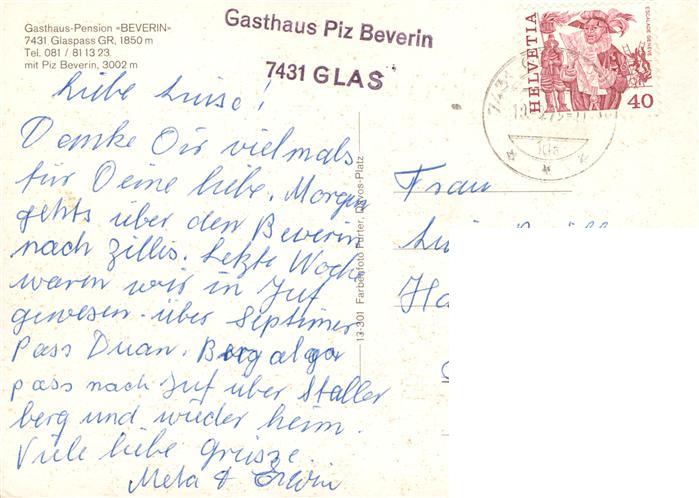 Gasthaus-Pension «BEVERIN»
7431 Glaspass GR, 1850 m
Tel. 081 / 81 13 23
mit Piz Beverin, 3002 m
Gasthaus Piz Beverin
7431 GLAS
HELVETIA
ESCALADE GENÈVE
40
Liebe Luise!
Danke Dir vielmals
für Deine liebe. Morgen
gehts über den Beverin
nach Zillis. Letzte Woche
waren wir in Juf
gewesen. über Septimer
Pass Duan. Bergalga
pass nach Juf über Staller
berg und wieder heim.
Viele liebe Grüsze
Meta & Erwin
13-301 Farbenfoto Furter, Davos-Platz
Frau